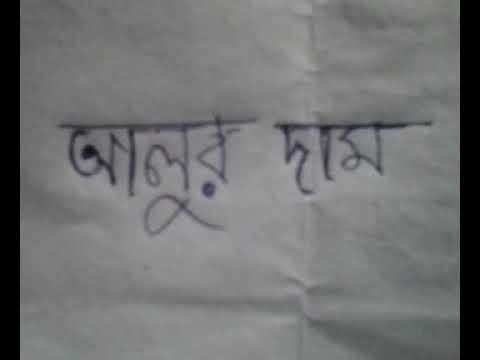 আলুর দাম